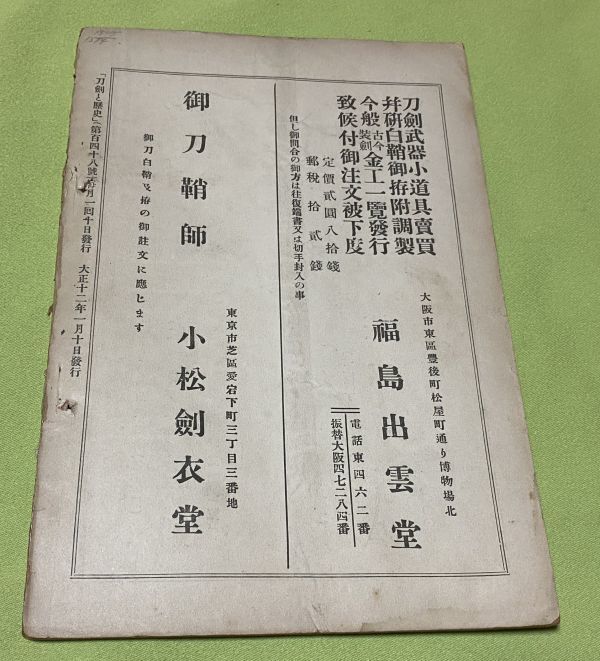 刀劍武器小道具賣買
幷硏白鞘御拵附調製
今般古今裝劍金工一覽發行
致候付御注文被下度
定價貳圓八拾錢
郵稅拾貳錢
但し御問合の御方は往復端書又は切手封入の事
大阪市東區豐後町松屋町通り博物場北
福島出雲堂
電話東四六二番
振替大阪四七二八四番
御刀鞘師
御刀白鞘及拵の御註文に應じます
東京市芝區愛宕下町三丁目三番地
小松劍衣堂
「刀劍と歷史」第百四十八號 每月一回十日發行 大正十二年一月十日發行